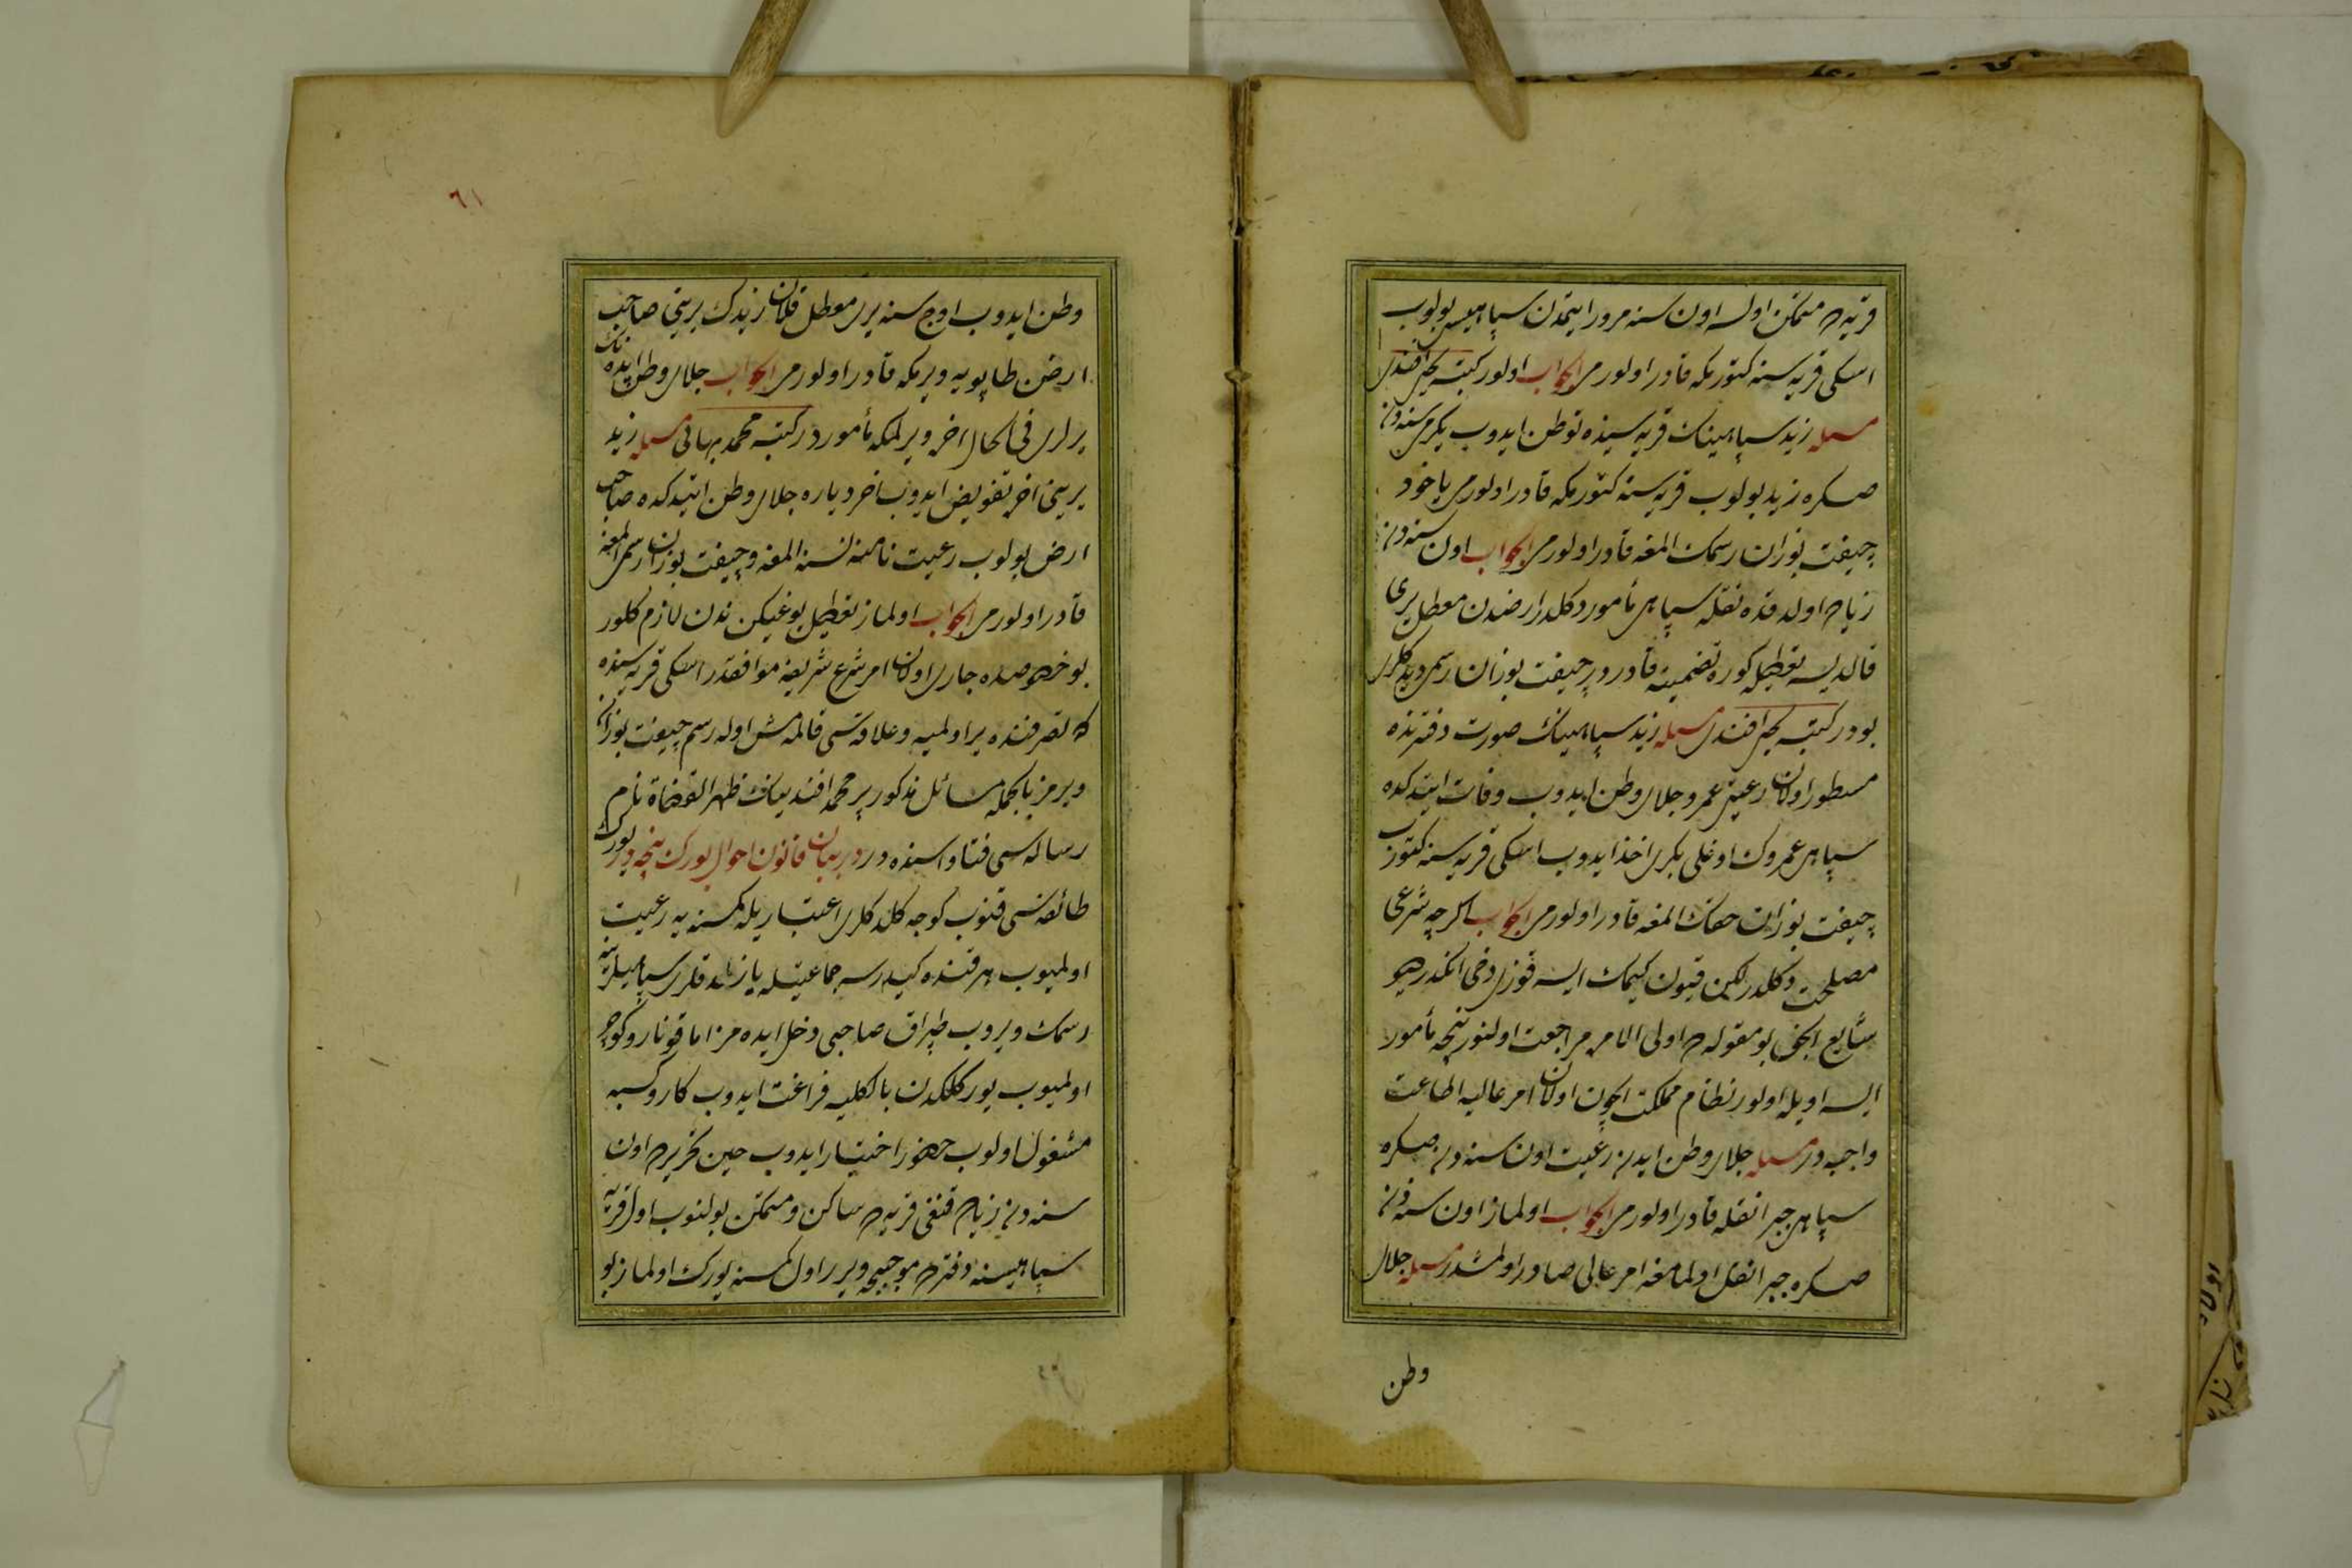 قریه ده متمکن اولسه اون سنه مرور ایتمدن سپاهیسی بولوب
اسکی قریه سنه کتورمکه قادر اولورمی الجواب اولور کتبه یحیی افندی
مسئله زید سپاهینك قریه سنده توطن ایدوب یکرمی سنه دن
صکره زید بولوب قریه سنه کتورمکه قادر اولورمی یاخود
چیفت بوزان رسمك المغه قادر اولورمی الجواب اون سنه دن
زیاده اولدقده نقله سپاهی مأمور دکلدر ارضندن معطل یری
قالدیسه تعطیله کوره تضمینه قادردر چیفت بوزان رسمی دیدکلری
بودر کتبه یحیی افندی مسئله زید سپاهینك صورت دفترنده
مسطور اولان رعیتی عمرو جلای وطن ایدوب وفات ایتدکده
سپاهی عمروك اوغلی بکری اخذ ایدوب اسکی قریه سنه کتورب
چیفت بوزان حقنك المغه قادر اولورمی الجواب اکرچه شرعی
مصلحت دکلدر لکن قیون کیمك ایسه قوزی دخی انکدر دیو
شایع اولمغین بو مقوله ده اولی الامره مراجعت اولنور نیجه مأمور
ایسه اویله اولور نظام مملکت ایچون اولان امر عالیه اطاعت
واجبدر مسئله جلای وطن ایدن رعیت اون سنه دن صکره
سپاهی جبرا نقله قادر اولورمی الجواب اولماز اون سنه دن
صکره جبرا نقل اولنمامغه امر عالی صادر اولمشدر مسئله جلای
وطن
٦١
وطن ایدوب اوچ سنه یری معطل قلان زیدك یرینی صاحب
ارض طاپویه ویرمکه قادر اولورمی الجواب جلای وطن ایدنك
یرلری فی الحال اخره ویرلمکه مأموردر کتبه محمد بهائی مسئله زید
یرینی اخره تفویض ایدوب اخر دیاره جلای وطن ایتدکده صاحب
ارض بولوب رعیت نامنه نسنه المغه و چیفت بوزان رسمی المغه
قادر اولورمی الجواب اولماز تعطیل یوغیکن ندن لازم کلور
بو خصوصده جاری اولان امر شرع شریفه موافقدر اسکی قریه سنده
که تصرفنده یر اولمیه و علاقه سی قالمامش اوله رسم چیفت بوزان
ویرمز بالجمله مسائل مذکور پیر محمد افندینك ظهیر القضاة نام
رساله سی فتاواسنده در در بیان قانون احوال یورکان نیجه در یورك
طائفه سی قنوب کوچه کلدکلری اعتباریله کمسنه یه رعیت
اولمیوب هر قنده کیدرسه جماعتیله یازلدقلری سپاهیلرینه
رسمك ویروب طپراق صاحبی دخل ایده مز اما قونار و کوچر
اولمیوب یورکلکدن بالکلیه فراغت ایدوب کار و کسبه
مشغول اولوب حضر اختیار ایدوب حین تحریرده اون
سنه دن زیاده قنغی قریه ده ساکن و متمکن بولنوب اول قریه
سپاهیسنه دفترده موجبجه ویرر اول کمسنه یورك اولماز بو